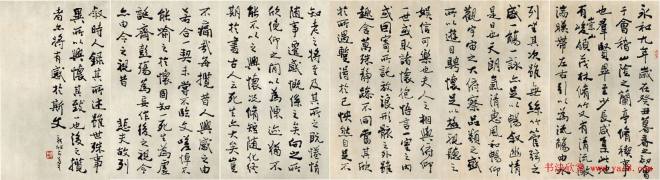 永和九年歲在癸丑暮春之初會
于會稽山陰之蘭亭脩稧事
也群賢畢至少長咸集此地有
崇山峻領茂林脩竹又有清流激
湍暎帶左右引以為流觴曲水
列坐其次雖無絲竹管弦之
盛一觴一詠亦足以暢敘幽情
是日也天朗氣清惠風和暢仰
觀宇宙之大俯察品類之盛
所以遊目騁懷足以極視聽之
娛信可樂也夫人之相與俯仰
一世或取諸懷抱悟言一室之內
或因寄所託放浪形骸之外雖
趣舍萬殊靜躁不同當其欣
於所遇暫得於己怏然自足不
知老之將至及其所之既惓情
隨事遷感慨係之矣向之所
欣俛仰之閒以為陳迹猶不
能不以之興懷況脩短隨化終
期於盡古人云死生亦大矣豈
不痛哉每攬昔人興感之由
若合一契未嘗不臨文嗟悼不
能喻之於懷固知一死生為虛
誕齊彭殤為妄作後之視今
亦由今之視昔 悲夫故列
敘時人錄其所述雖世殊事
異所以興懷其致一也後之攬
者亦將有感於斯文